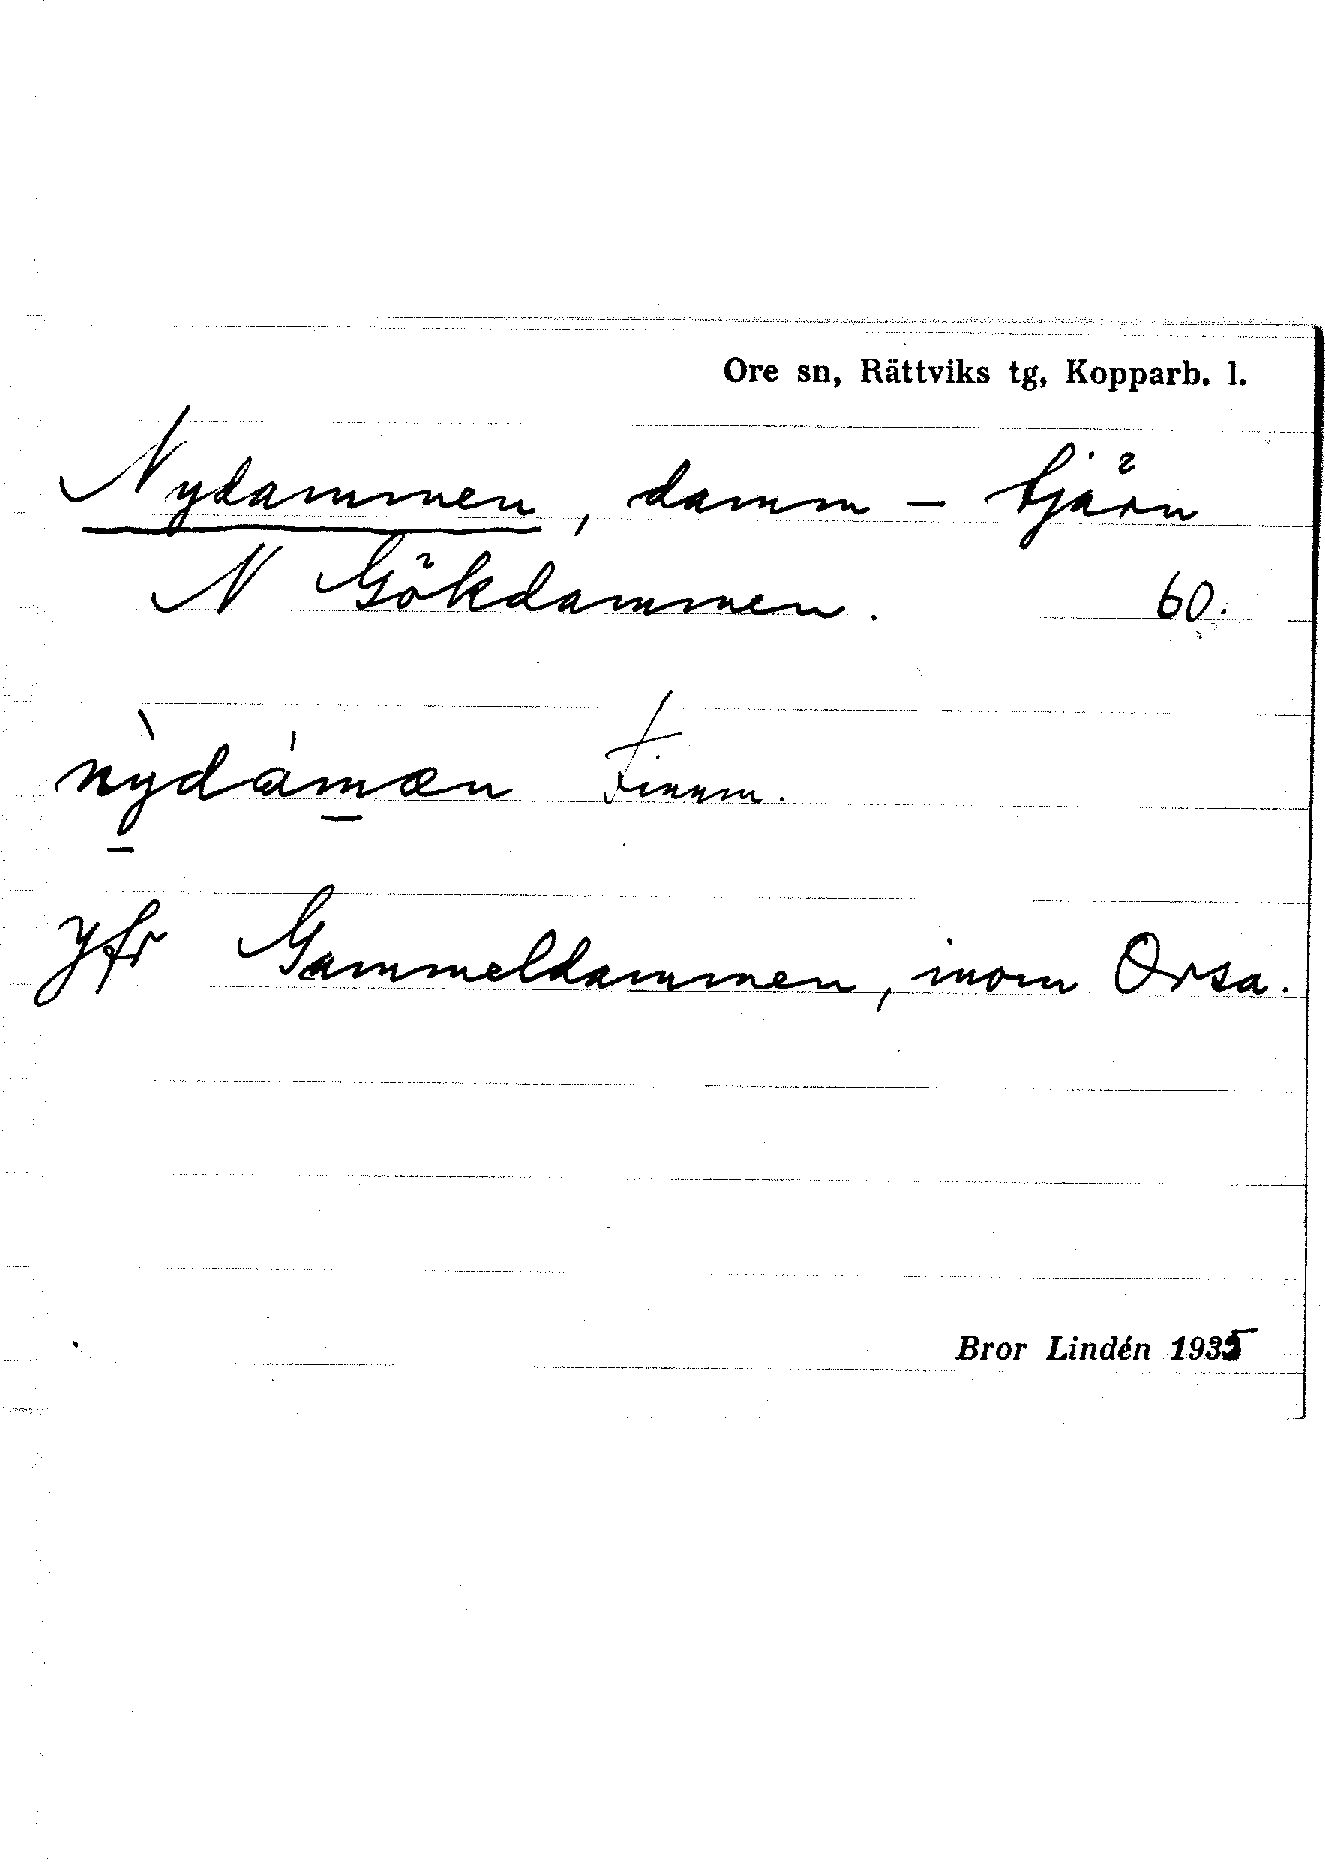 Ore sn, Rättviks tg, Kopparb. l.
Nydammen, damm – tjärn
N Gökdammen. 60.
nỳdámæn Finnm.
Jfr Gammeldammen, inom Orsa.
Bror Lindén 1935